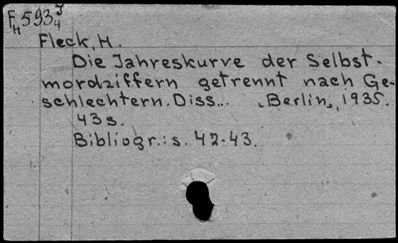 F4 593 3/4
Fleck, H.
Die Jahreskurve der Selbst-
mordziffern getrennt nach Ge-
schlechtern. Diss... „Berlin„, 1935.
43s.
Bibliogr.: s. 42-43.